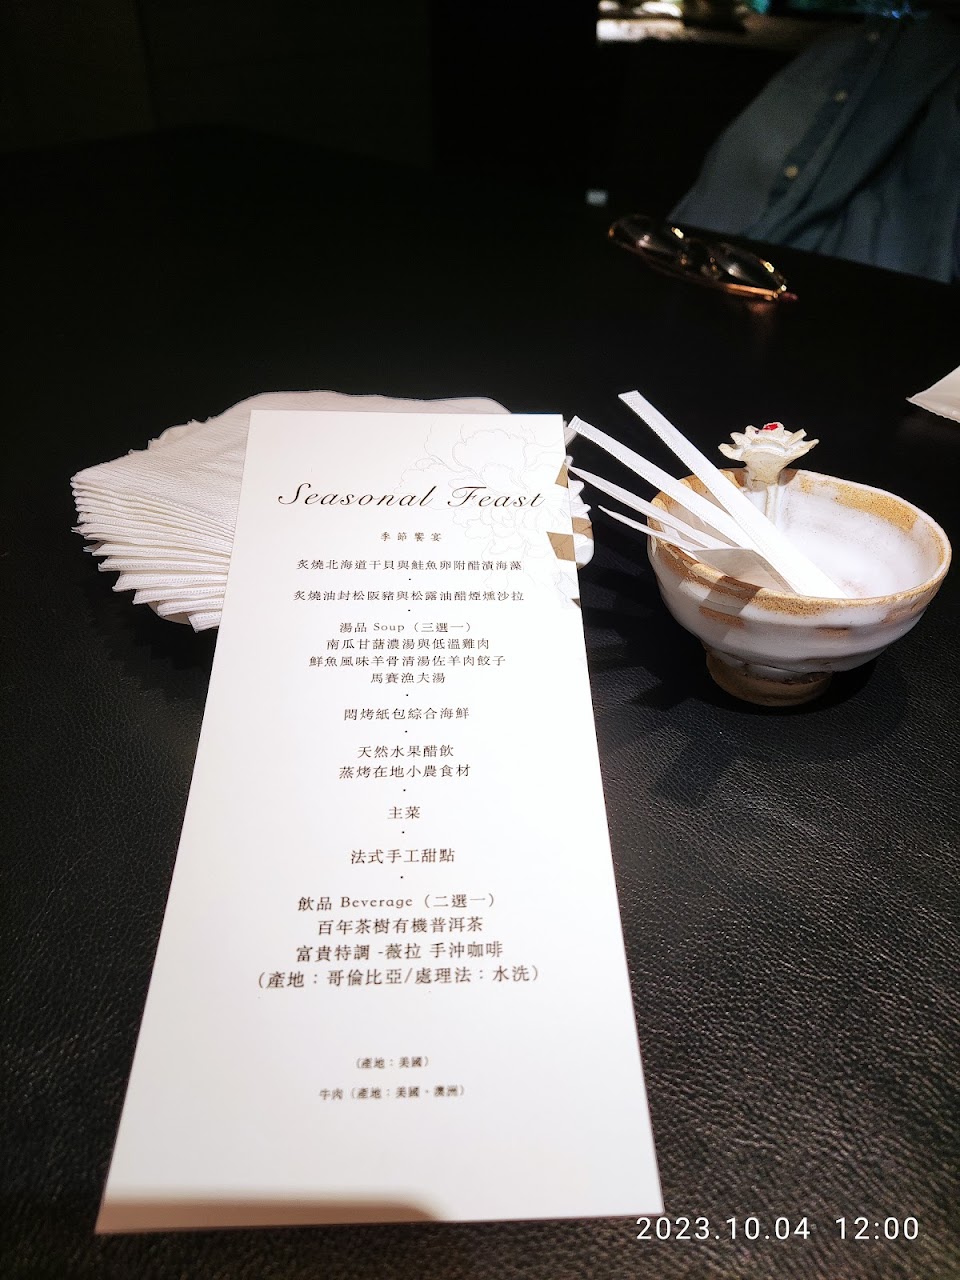 Seasonal Feast
季節饗宴
炙燒北海道干貝與鮭魚卵附醋漬海藻
·
炙燒油封松阪豬與松露油醋煙燻沙拉
·
湯品 Soup (三選一)
南瓜甘藷濃湯與低溫雞肉
鮮魚風味羊骨清湯佐羊肉餃子
馬賽漁夫湯
·
悶烤紙包綜合海鮮
·
天然水果醋飲
蒸烤在地小農食材
·
主菜
·
法式手工甜點
·
飲品 Beverage (二選一)
百年茶樹有機普洱茶
富貴特調 -薇拉 手沖咖啡
(產地：哥倫比亞/處理法：水洗)
(產地：美國)
牛肉 (產地：美國、澳洲)
2023.10.04 12:00